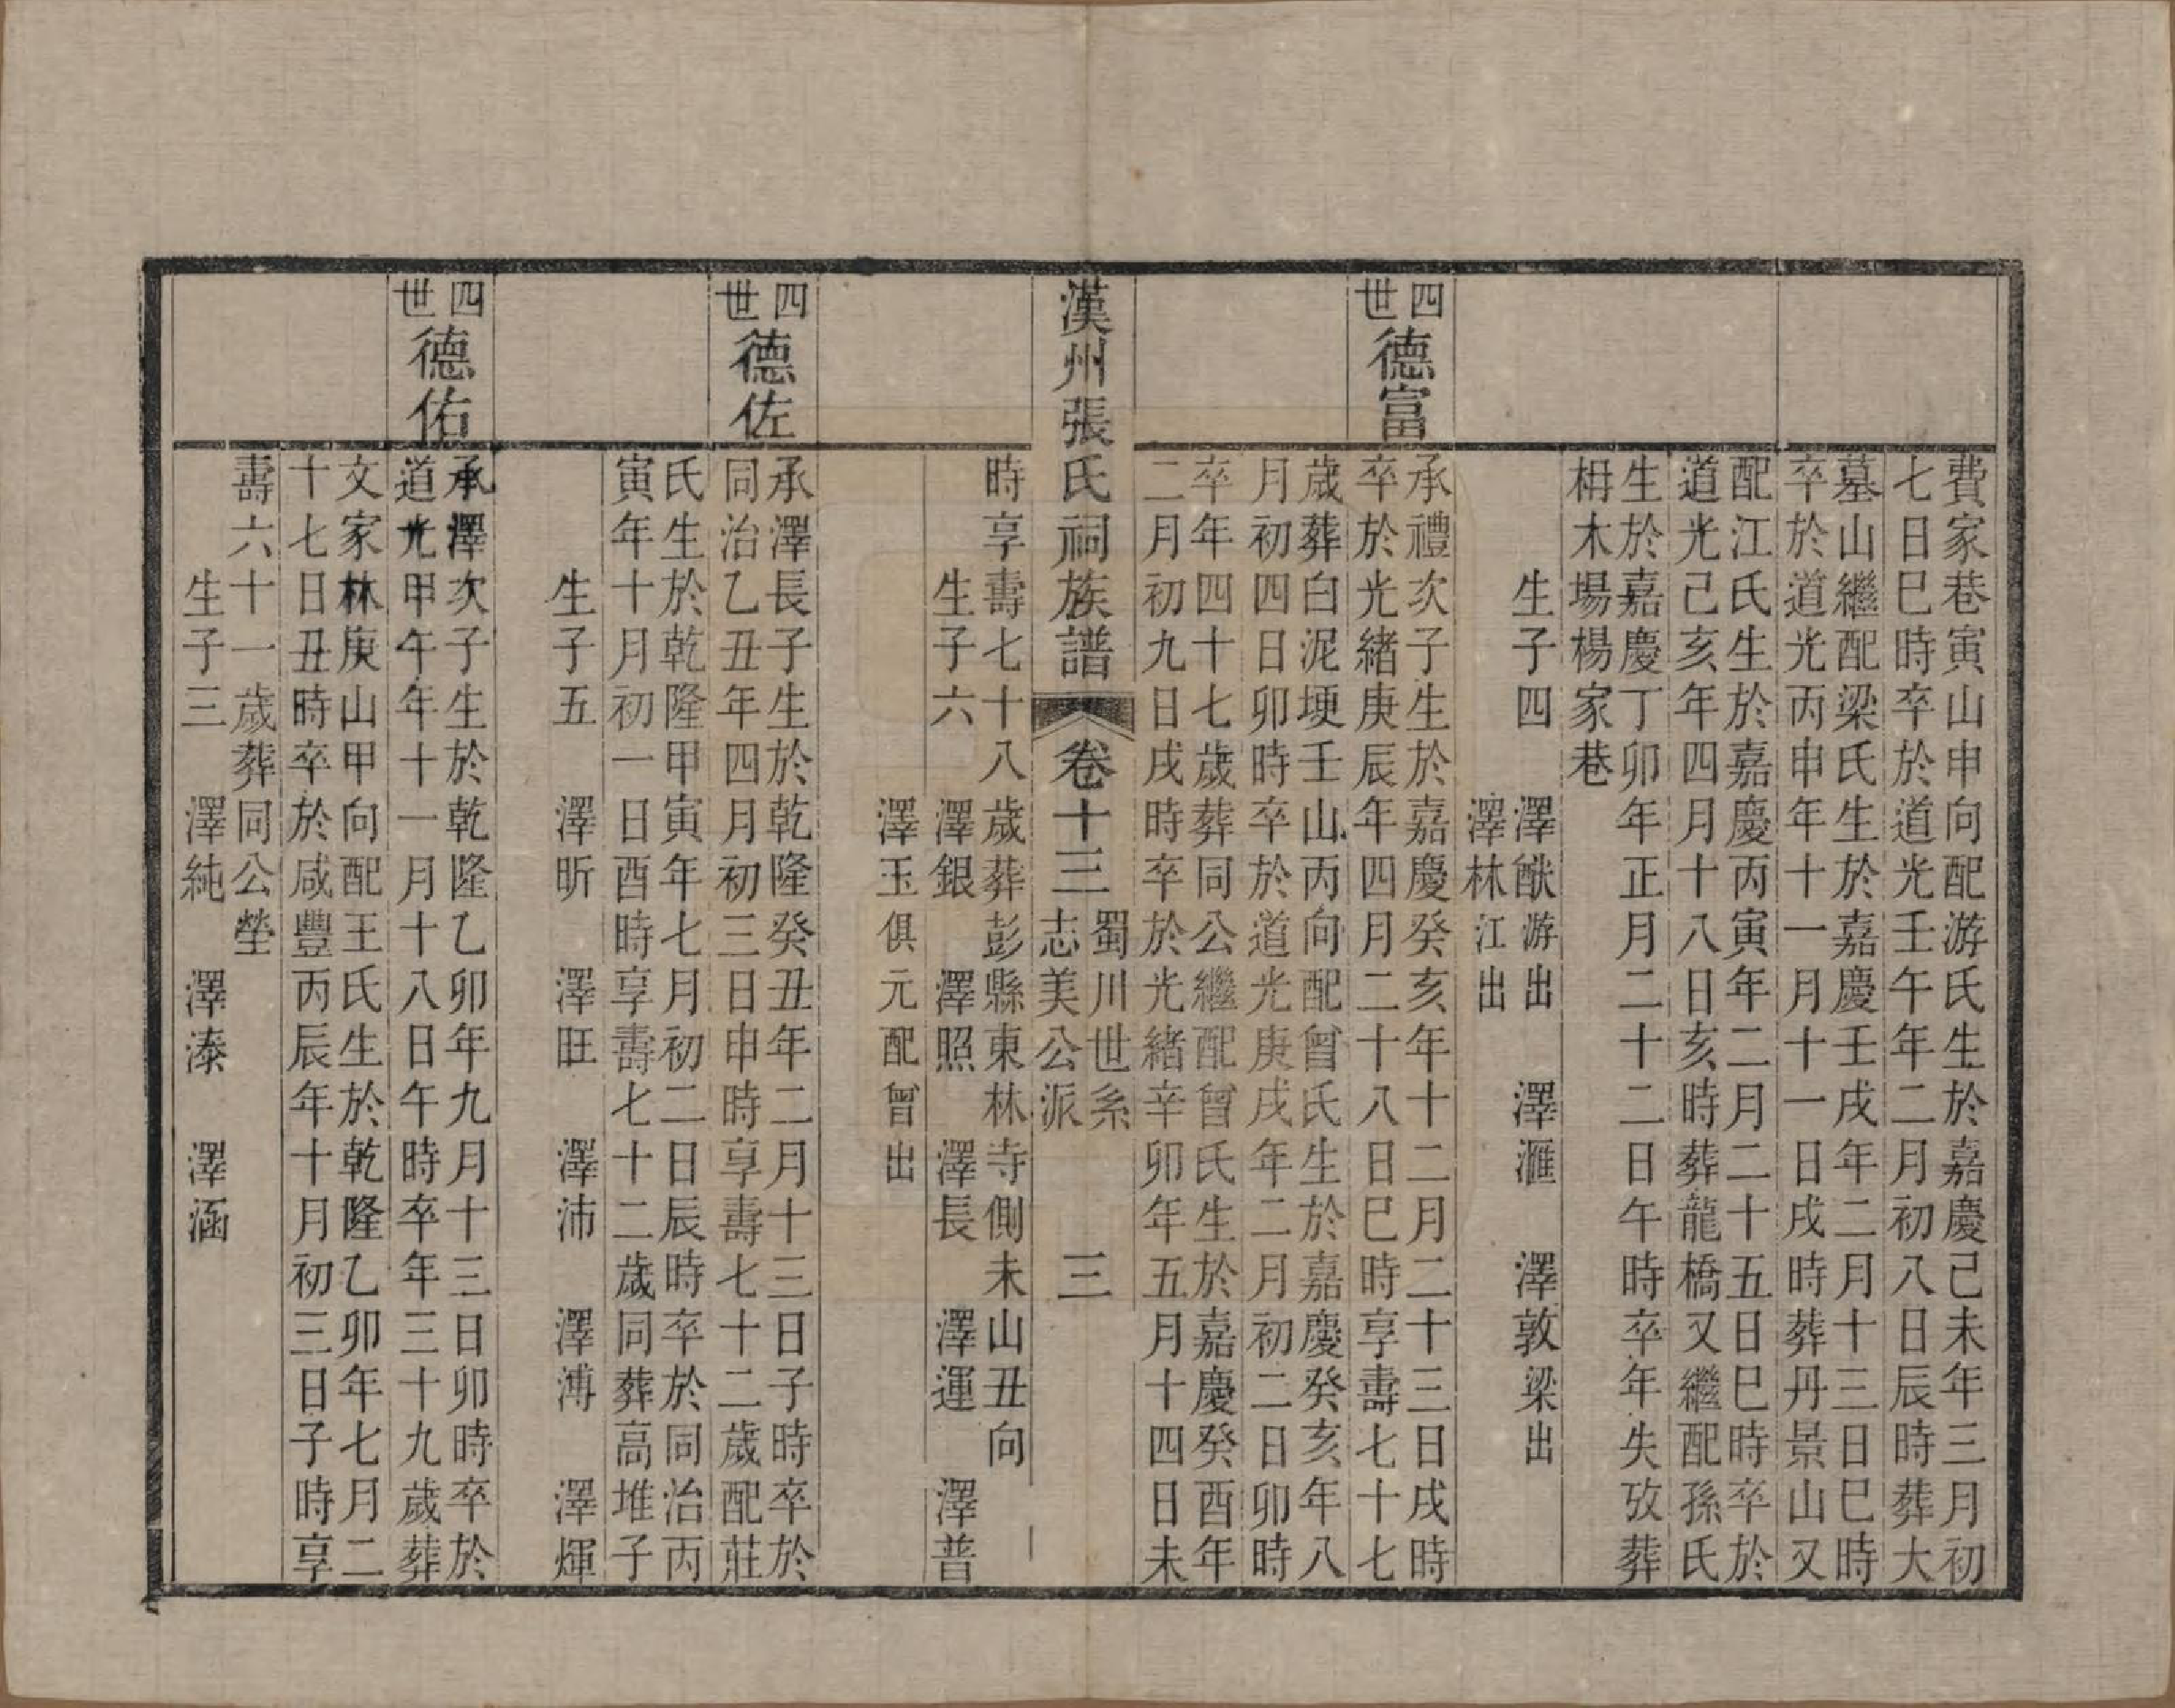 費家巷寅山申向配游氏生於嘉慶己未年三月初
七日巳時卒於道光壬午年二月初八日辰時葬大
墓山繼配梁氏生於嘉慶壬戌年二月十三日巳時
卒於道光丙申年十一月十一日戌時葬丹景山又
配江氏生於嘉慶丙寅年二月二十五日巳時卒於
道光己亥年四月十八日亥時葬龍橋又繼配孫氏
生於嘉慶丁卯年正月二十二日午時卒年失攷葬
栂木場楊家巷
生子四 澤猷游出 澤滙 澤敦梁出
澤林江出
四世德富
承禮次子生於嘉慶癸亥年十二月二十三日戌時
卒於光緒庚辰年四月二十八日巳時享壽七十七
歲葬白泥埂壬山丙向配曾氏生於嘉慶癸亥年八
月初四日卯時卒於道光庚戌年二月初二日卯時
卒年四十七歲葬同公繼配曾氏生於嘉慶癸酉年
二月初九日戌時卒於光緒辛卯年五月十四日未
漢州張氏祠族譜 卷十三 蜀川世系志美公派 三
時享壽七十八歲葬彭縣東林寺側未山丑向
生子六 澤銀 澤照 澤長 澤運 澤普
澤玉俱元配曾出
四世德佐
承澤長子生於乾隆癸丑年二月十三日子時卒於
同治乙丑年四月初三日申時享壽七十二歲配莊
氏生於乾隆甲寅年七月初二日辰時卒於同治丙
寅年十月初一日酉時享壽七十二歲同葬高堆子
生子五 澤昕 澤旺 澤沛 澤溥 澤煇
四世德佑
承澤次子生於乾隆乙卯年九月十三日卯時卒於
道光甲午年十一月十八日午時卒年三十九歲葬
文家林庚山甲向配王氏生於乾隆乙卯年七月二
十七日丑時卒於咸豐丙辰年十月初三日子時享
壽六十一歲葬同公塋
生子三 澤純 澤溱 澤涵